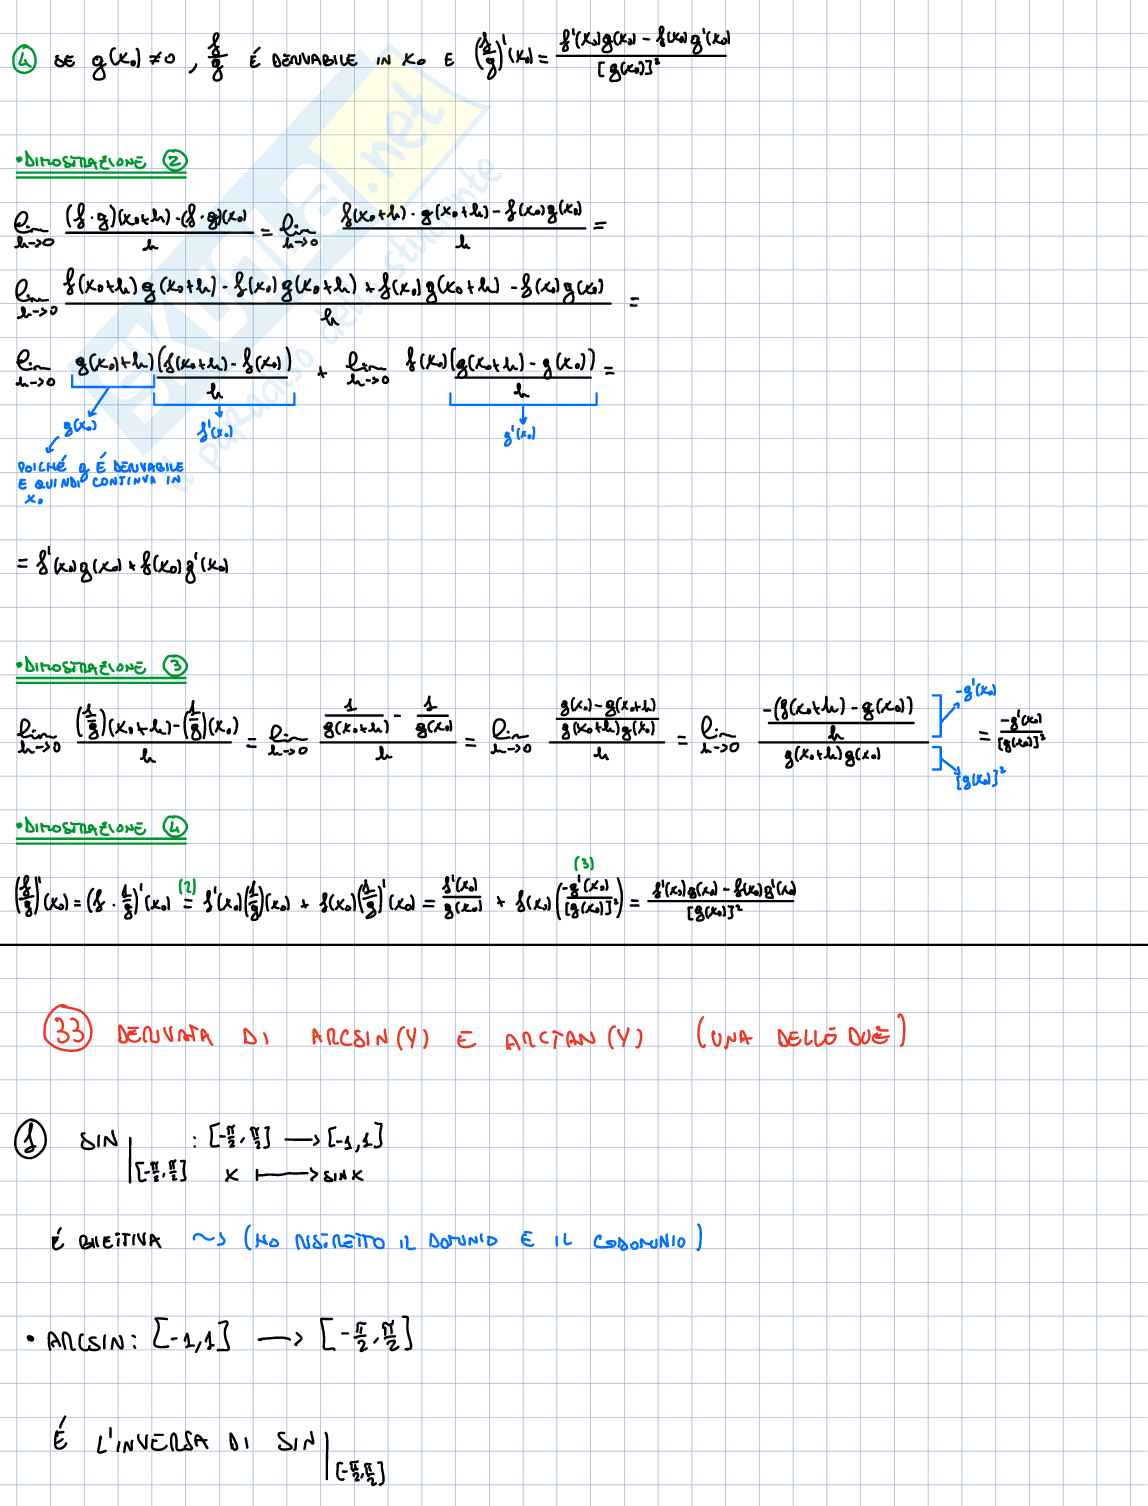 ④ SE g(x₀) ≠ 0 , f/g É DERIVABILE IN x₀ E (f/g)'(x₀) = (f'(x₀)g(x₀) - f(x₀)g'(x₀)) / [g(x₀)]²
•DIMOSTRAZIONE ②
lim h->0 ((f·g)(x₀+h) - (f·g)(x₀)) / h = lim h->0 (f(x₀+h) · g(x₀+h) - f(x₀)g(x₀)) / h =
lim h->0 (f(x₀+h) g(x₀+h) - f(x₀) g(x₀+h) + f(x₀) g(x₀+h) - f(x₀) g(x₀)) / h =
lim h->0 g(x₀)+h) (f(x₀+h) - f(x₀)) / h + lim h->0 f(x₀) (g(x₀+h) - g(x₀)) / h =
g(x₀) f'(x₀) g'(x₀)
POICHÉ g É DERIVABILE
E QUINDI CONTINUA IN
x₀
= f'(x₀) g(x₀) + f(x₀) g'(x₀)
•DIMOSTRAZIONE ③
lim h->0 ((1/g)(x₀+h) - (1/g)(x₀)) / h = lim h->0 (1/g(x₀+h) - 1/g(x₀)) / h = lim h->0 ((g(x₀) - g(x₀+h)) / (g(x₀+h)g(x₀))) / h = lim h->0 (-(g(x₀+h) - g(x₀)) / h) / (g(x₀+h)g(x₀)) -g'(x₀) [g(x₀)]² = -g'(x₀) / [g(x₀)]²
•DIMOSTRAZIONE ④
(f/g)'(x₀) = (f · 1/g)'(x₀) =(2) f'(x₀)(1/g)(x₀) + f(x₀)(1/g)'(x₀) = f'(x₀)/g(x₀) + f(x₀) (-g'(x₀)/[g(x₀)]²) (3) = (f'(x₀)g(x₀) - f(x₀)g'(x₀)) / [g(x₀)]²
㉝ DERIVATA DI ARCSIN(Y) E ARCTAN(Y) (UNA DELLE DUE)
① SIN |[-π/2, π/2] : [-π/2, π/2] -> [-1,1]
x ↦ SIN X
É BIIETTIVA ~> (HO RISTRETTO IL DOMINIO E IL CODOMINIO)
• ARCSIN: [-1,1] -> [-π/2, π/2]
É L'INVERSA DI SIN |[-π/2, π/2]
SKUOLA.net
il paradiso dello studente